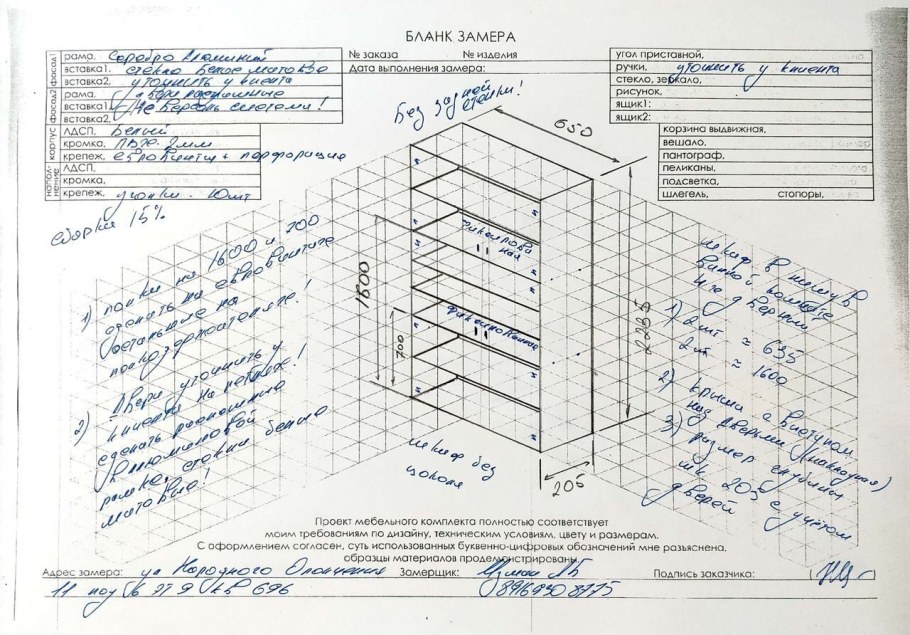 БЛАНК ЗАМЕРА
фасад1
рама. Серебро Алюминий
вставка1. стекло белое матовое
вставка2. уточнить у клиента
фасад2
рама.
вставка1.
вставка2.
корпус
ЛДСП, Белый
кромка, ПВХ 2мм
крепеж, евровинты + перфорация
наполнение
ЛДСП,
кромка,
крепеж, уголки. 10шт
сборка 15%
№ заказа № изделия
Дата выполнения замера:
угол приставной,
ручки, уточнить у клиента
стекло, зеркало,
рисунок,
ящик1:
ящик2:
корзина выдвижная,
вешало,
пантограф,
пеликаны,
подсветка,
шлегель, стопоры,
Без задней
стенки!
650
1600
700
2285
205
Фиксирова
ная
Фиксированная
шкаф без
цоколя
1) полки на 1600 и 700
сделать на евровинтах
остальные на
полкодержателе!
2) Двери уточнить у
клиента На петлях!
сделать
рамке, стекло белое
матовое!
шкаф в нишу в
ванной комнате
4-е двери
1) 2шт ≈ 635
2шт ≈ 1600
2) крыша с выступом
над дверьми (накладная)
3) размер глубины
шк 205 с учётом
дверей
Проект мебельного комплекта полностью соответствует
моим требованиям по дизайну, техническим условиям, цвету и размерам.
С оформлением согласен, суть использованных буквенно-цифровых обозначений мне разъяснена,
образцы материалов продемонстрированы
Адрес замера: ул Народного Ополчения Замерщик: Подпись заказчика:
11 под 6 эт 9 кв 696